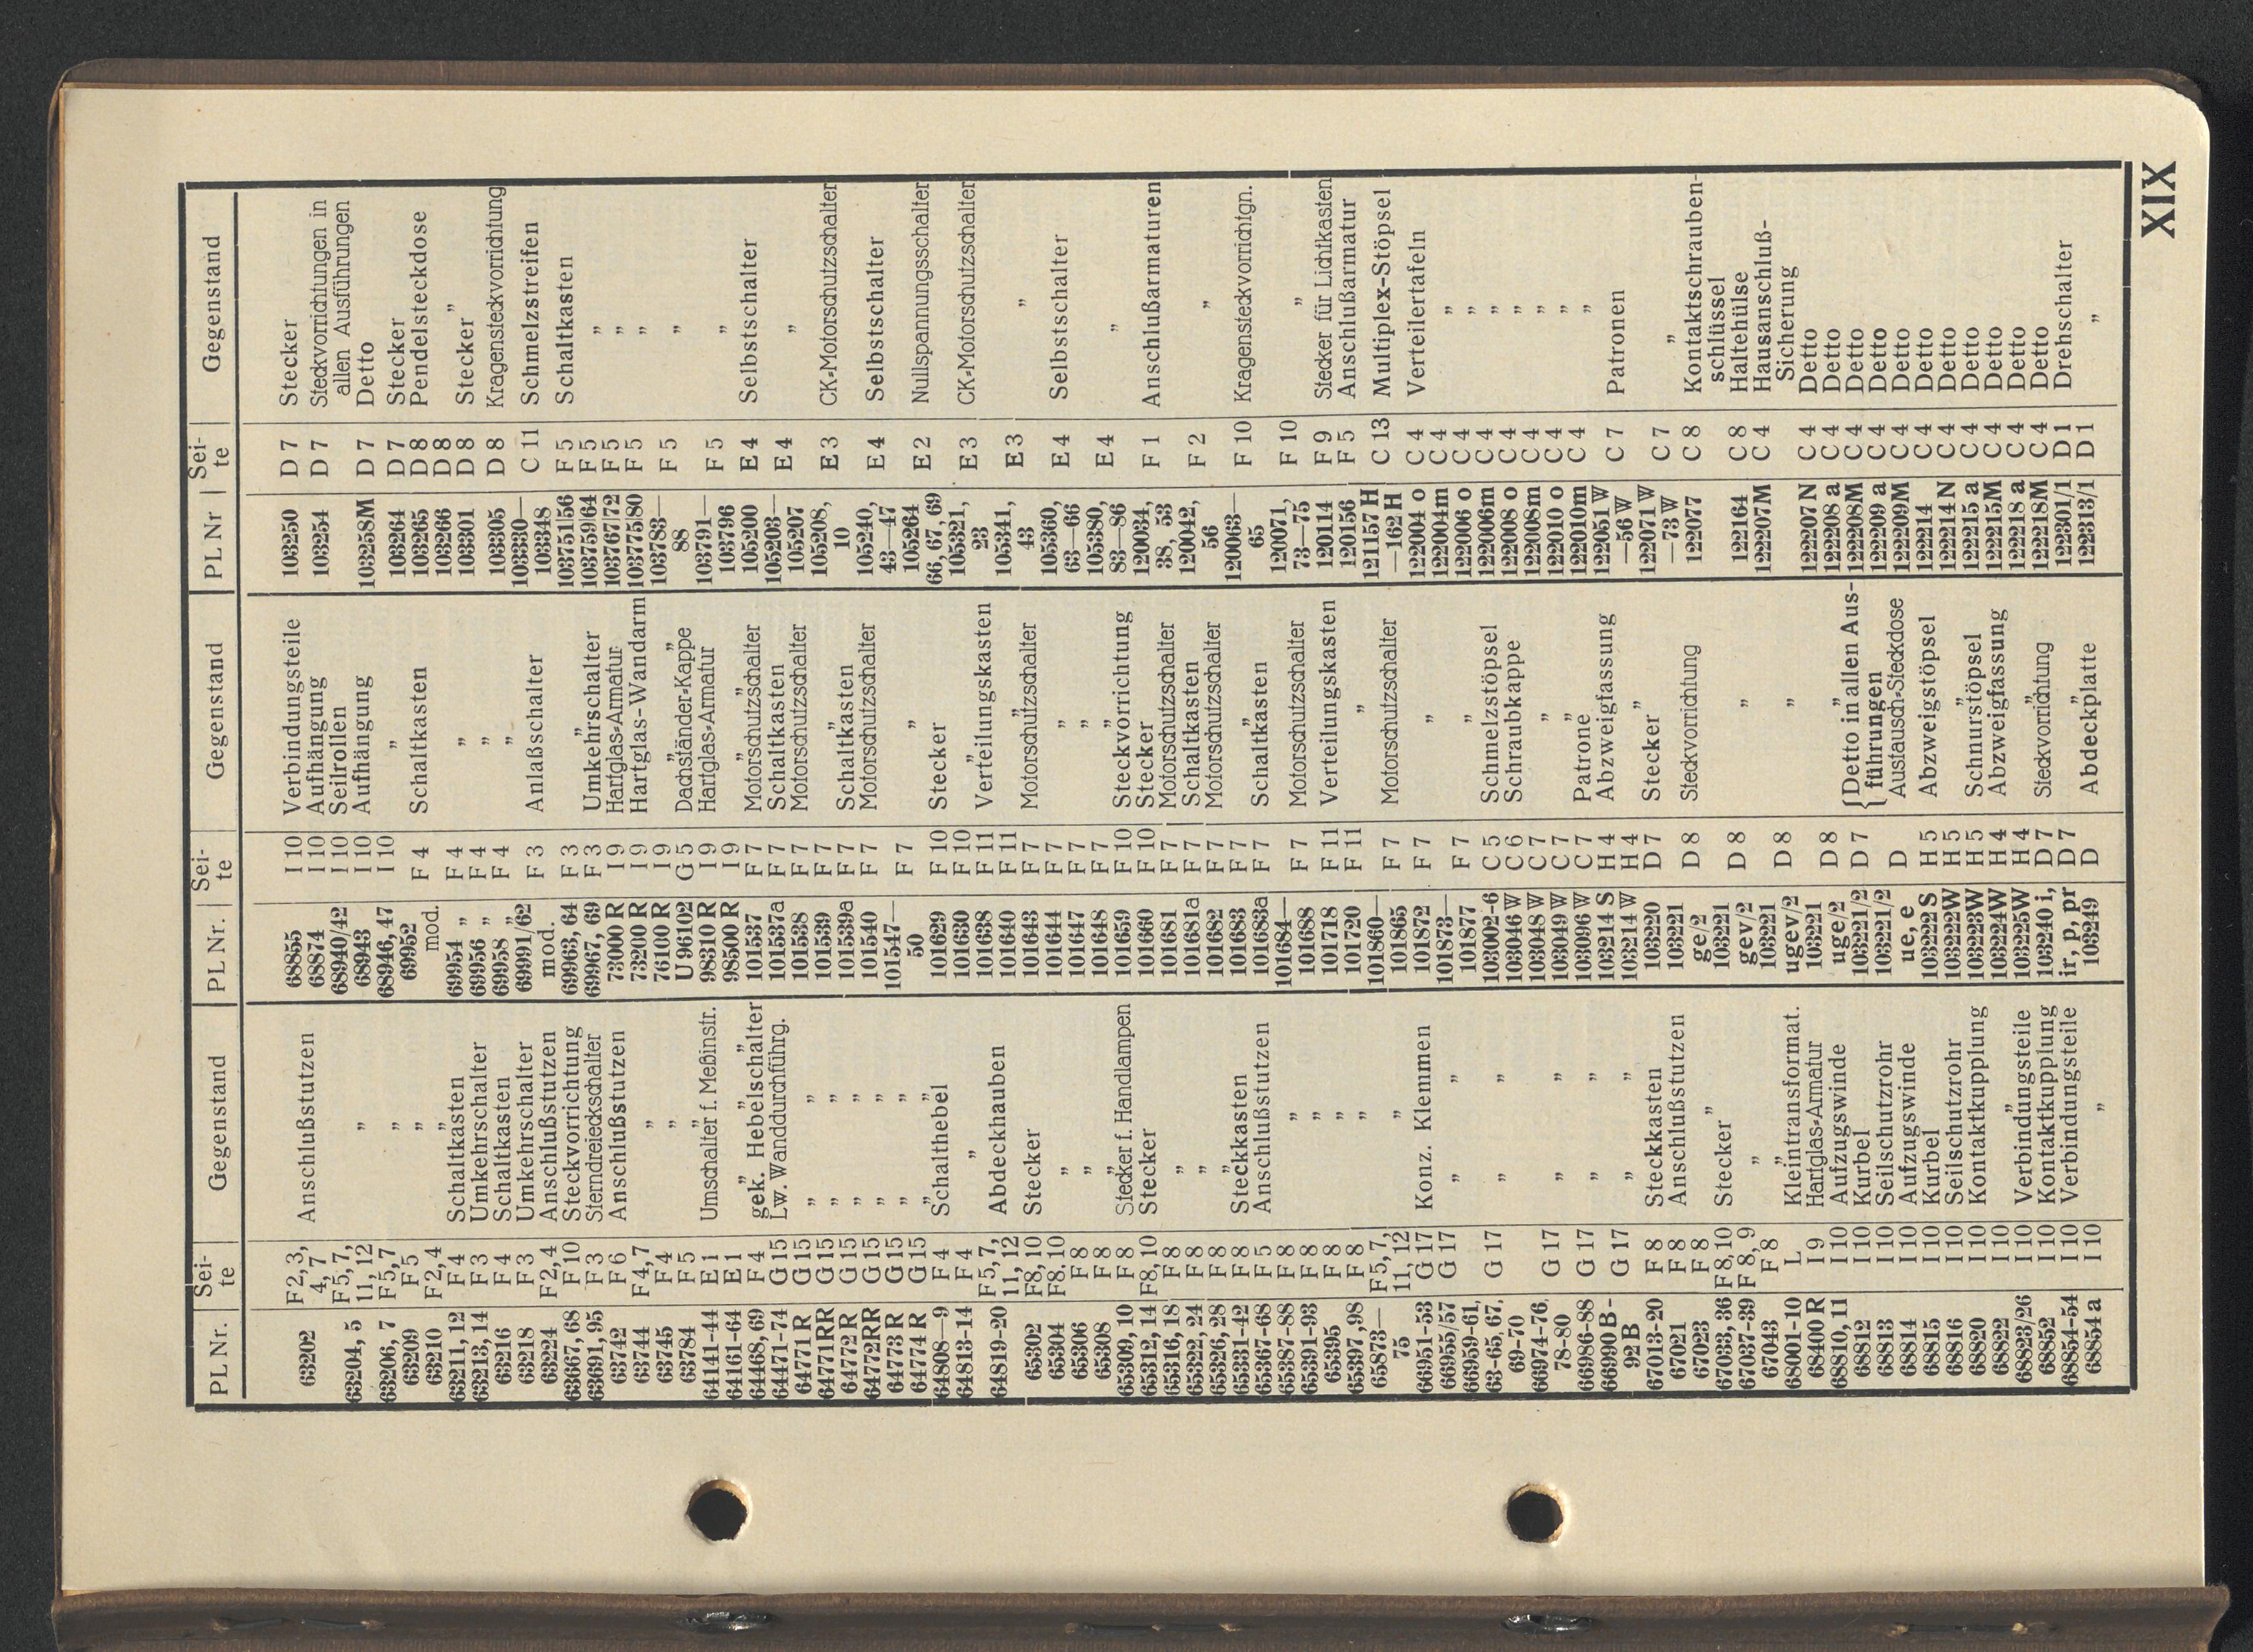 XIX
PL Nr. Sei-te Gegenstand
63202 F 2, 3, 4, 7 Anschlußstutzen
63204, 5 F 5, 7, 11, 12 „
63206, 7 F 5, 7 „
63209 F 5 „
63210 F 2, 4 „
63211, 12 F 4 Schaltkasten
63213, 14 F 3 Umkehrschalter
63216 F 4 Schaltkasten
63218 F 3 Umkehrschalter
63224 F 2, 4 Anschlußstutzen
63667, 68 F 10 Steckvorrichtung
63691, 95 F 3 Sterndreieckschalter
63742 F 6 Anschlußstutzen
63744 F 4, 7 „
63745 F 4 „
63784 F 5 „
64141-44 E 1 Umschalter f. Meßinstr.
64161-64 E 1 „ „
64468, 69 F 4 gek. Hebelschalter
64471-74 G 15 Lw. Wanddurchführg.
64771 R G 15 „ „
64771 RR G 15 „ „
64772 R G 15 „ „
64772 RR G 15 „ „
64773 R G 15 „ „
64774 R G 15 „ „
64808—9 F 4 Schalthebel
64813-14 F 4 „
64819-20 F 5, 7, 11, 12 Abdeckhauben
65302 F 8, 10 Stecker
65304 F 8, 10 „
65306 F 8 „
65308 F 8 „
65309, 10 F 8 Stecker f. Handlampen
65312, 14 F 8, 10 Stecker
65316, 18 F 8 „
65322, 24 F 8 „
65326, 28 F 8 „
65331-42 F 8 Steckkasten
65367-68 F 5 Anschlußstutzen
65387-88 F 8 „
65391-93 F 8 „
65395 F 8 „
65397, 98 F 8 „
65873—75 F 5, 7, 11, 12 „
66951-53 G 17 Konz. Klemmen
66955/57 G 17 „ „
66959-61,
63-65, 67, G 17 „ „
69-70
66974-76, G 17 „ „
78-80
66986-88 G 17 „ „
66990 B - G 17 „ „
92 B
67013-20 F 8 Steckkasten
67021 F 8 Anschlußstutzen
67023 F 8 „
67033, 36 F 8, 10 Stecker
67037-39 F 8, 9 „
67043 F 8 „
68001-10 L Kleintransformat.
68400 R I 9 Hartglas-Armatur
68810, 11 I 10 Aufzugswinde
68812 I 10 Kurbel
68813 I 10 Seilschutzrohr
68814 I 10 Aufzugswinde
68815 I 10 Kurbel
68816 I 10 Seilschutzrohr
68820 I 10 Kontaktkupplung
68822 I 10 „
68823/26 I 10 Verbindungsteile
68852 I 10 Kontaktkupplung
68854-54 I 10 Verbindungsteile
68854 a I 10 „
PL Nr. Sei-te Gegenstand
68855 I 10 Verbindungsteile
68874 I 10 Aufhängung
68940/42 I 10 Seilrollen
68943 I 10 Aufhängung
68946, 47 I 10 „
69952 F 4 Schaltkasten
mod.
69954 „ F 4 „
69956 „ F 4 „
69958 „ F 4 „
69991/62 F 3 Anlaßschalter
mod.
69963, 64 F 3 „
69967, 69 F 3 Umkehrschalter
73000 R I 9 Hartglas-Armatur
73200 R I 9 Hartglas-Wandarm
76100 R I 9 „ „
U 96102 G 5 Dachständer-Kappe
98310 R I 9 Hartglas-Armatur
98500 R I 9 „
101537 F 7 Motorschutzschalter
101537a F 7 Schaltkasten
101538 F 7 Motorschutzschalter
101539 F 7 „
101539a F 7 Schaltkasten
101540 F 7 Motorschutzschalter
101547— F 7 „
50
101629 F 10 Stecker
101630 F 10 „
101638 F 11 Verteilungskasten
101640 F 11 „
101643 F 7 Motorschutzschalter
101644 F 7 „
101647 F 7 „
101648 F 7 „
101659 F 10 Steckvorrichtung
101660 F 10 Stecker
101681 F 7 Motorschutzschalter
101681a F 7 Schaltkasten
101682 F 7 Motorschutzschalter
101683 F 7 „
101683a F 7 Schaltkasten
101684— F 7 Motorschutzschalter
101688
101718 F 11 Verteilungskasten
101720 F 11 „
101860— F 7 Motorschutzschalter
101865
101872 F 7 „
101873— F 7 „
101877
103002-6 C 5 Schmelzstöpsel
103046 W C 6 Schraubkappe
103048 W C 7 „
103049 W C 7 „
103096 W C 7 Patrone
103214 S H 4 Abzweigfassung
103214 W H 4 „
103220 D 7 Stecker
103221 D 8 Steckvorrichtung
ge/2
103221 D 8 „
gev/2
103221 D 8 „
ugev/2
103221 D 8 „
uge/2
103221/2 D 7 {Detto in allen Aus-führungen
103221/2 D Austausch-Steckdose
ue, e
103222 S H 5 Abzweigstöpsel
103222W H 5 „
103223W H 5 Schnurstöpsel
103224W H 4 Abzweigfassung
103225W H 4 „
103240 i, D 7 Steckvorrichtung
ir, p, pr D 7
103249 D Abdeckplatte
PL Nr Sei-te Gegenstand
103250 D 7 Stecker
103254 D 7 Steckvorrichtungen in
allen Ausführungen
103258M D 7 Detto
103264 D 7 Stecker
103265 D 8 Pendelsteckdose
103266 D 8 „
103301 D 8 Stecker
103305 D 8 Kragensteckvorrichtung
103330— C 11 Schmelzstreifen
103348
103751|56 F 5 Schaltkasten
103759|64 F 5 „
103767|72 F 5 „
103775|80 F 5 „
103783— F 5 „
88
103791— F 5 „
103796
105200 E 4 Selbstschalter
105203— E 4 „
105207
105208, E 3 CK-Motorschutzschalter
10
105240, E 4 Selbstschalter
43—47
105264 E 2 Nullspannungsschalter
66, 67, 69
105321, E 3 CK-Motorschutzschalter
23
105341, E 3 „
43
105360, E 4 Selbstschalter
63—66
105380, E 4 „
83—86
120034, F 1 Anschlußarmaturen
38, 53
120042, F 2 „
56
120063— F 10 Kragensteckvorrichtgn.
65
120071, F 10 „
73—75
120114 F 9 Stecker für Lichtkasten
120156 F 5 Anschlußarmatur
121157 H C 13 Multiplex-Stöpsel
—162 H
122004 o C 4 Verteilertafeln
122004m C 4 „
122006 o C 4 „
122006m C 4 „
122008 o C 4 „
122008m C 4 „
122010 o C 4 „
122010m C 4 „
122051 W C 7 Patronen
—56 W
122071 W C 7 „
—73 W
122077 C 8 Kontaktschrauben-
schlüssel
122164 C 8 Haltehülse
122207M C 4 Hausanschluß-
Sicherung
122207 N C 4 Detto
122208 a C 4 Detto
122208M C 4 Detto
122209 a C 4 Detto
122209M C 4 Detto
122214 C 4 Detto
122214 N C 4 Detto
122215 a C 4 Detto
122215M C 4 Detto
122218 a C 4 Detto
122218M C 4 Detto
122301/1 D 1 Drehschalter
122313/1 D 1 „